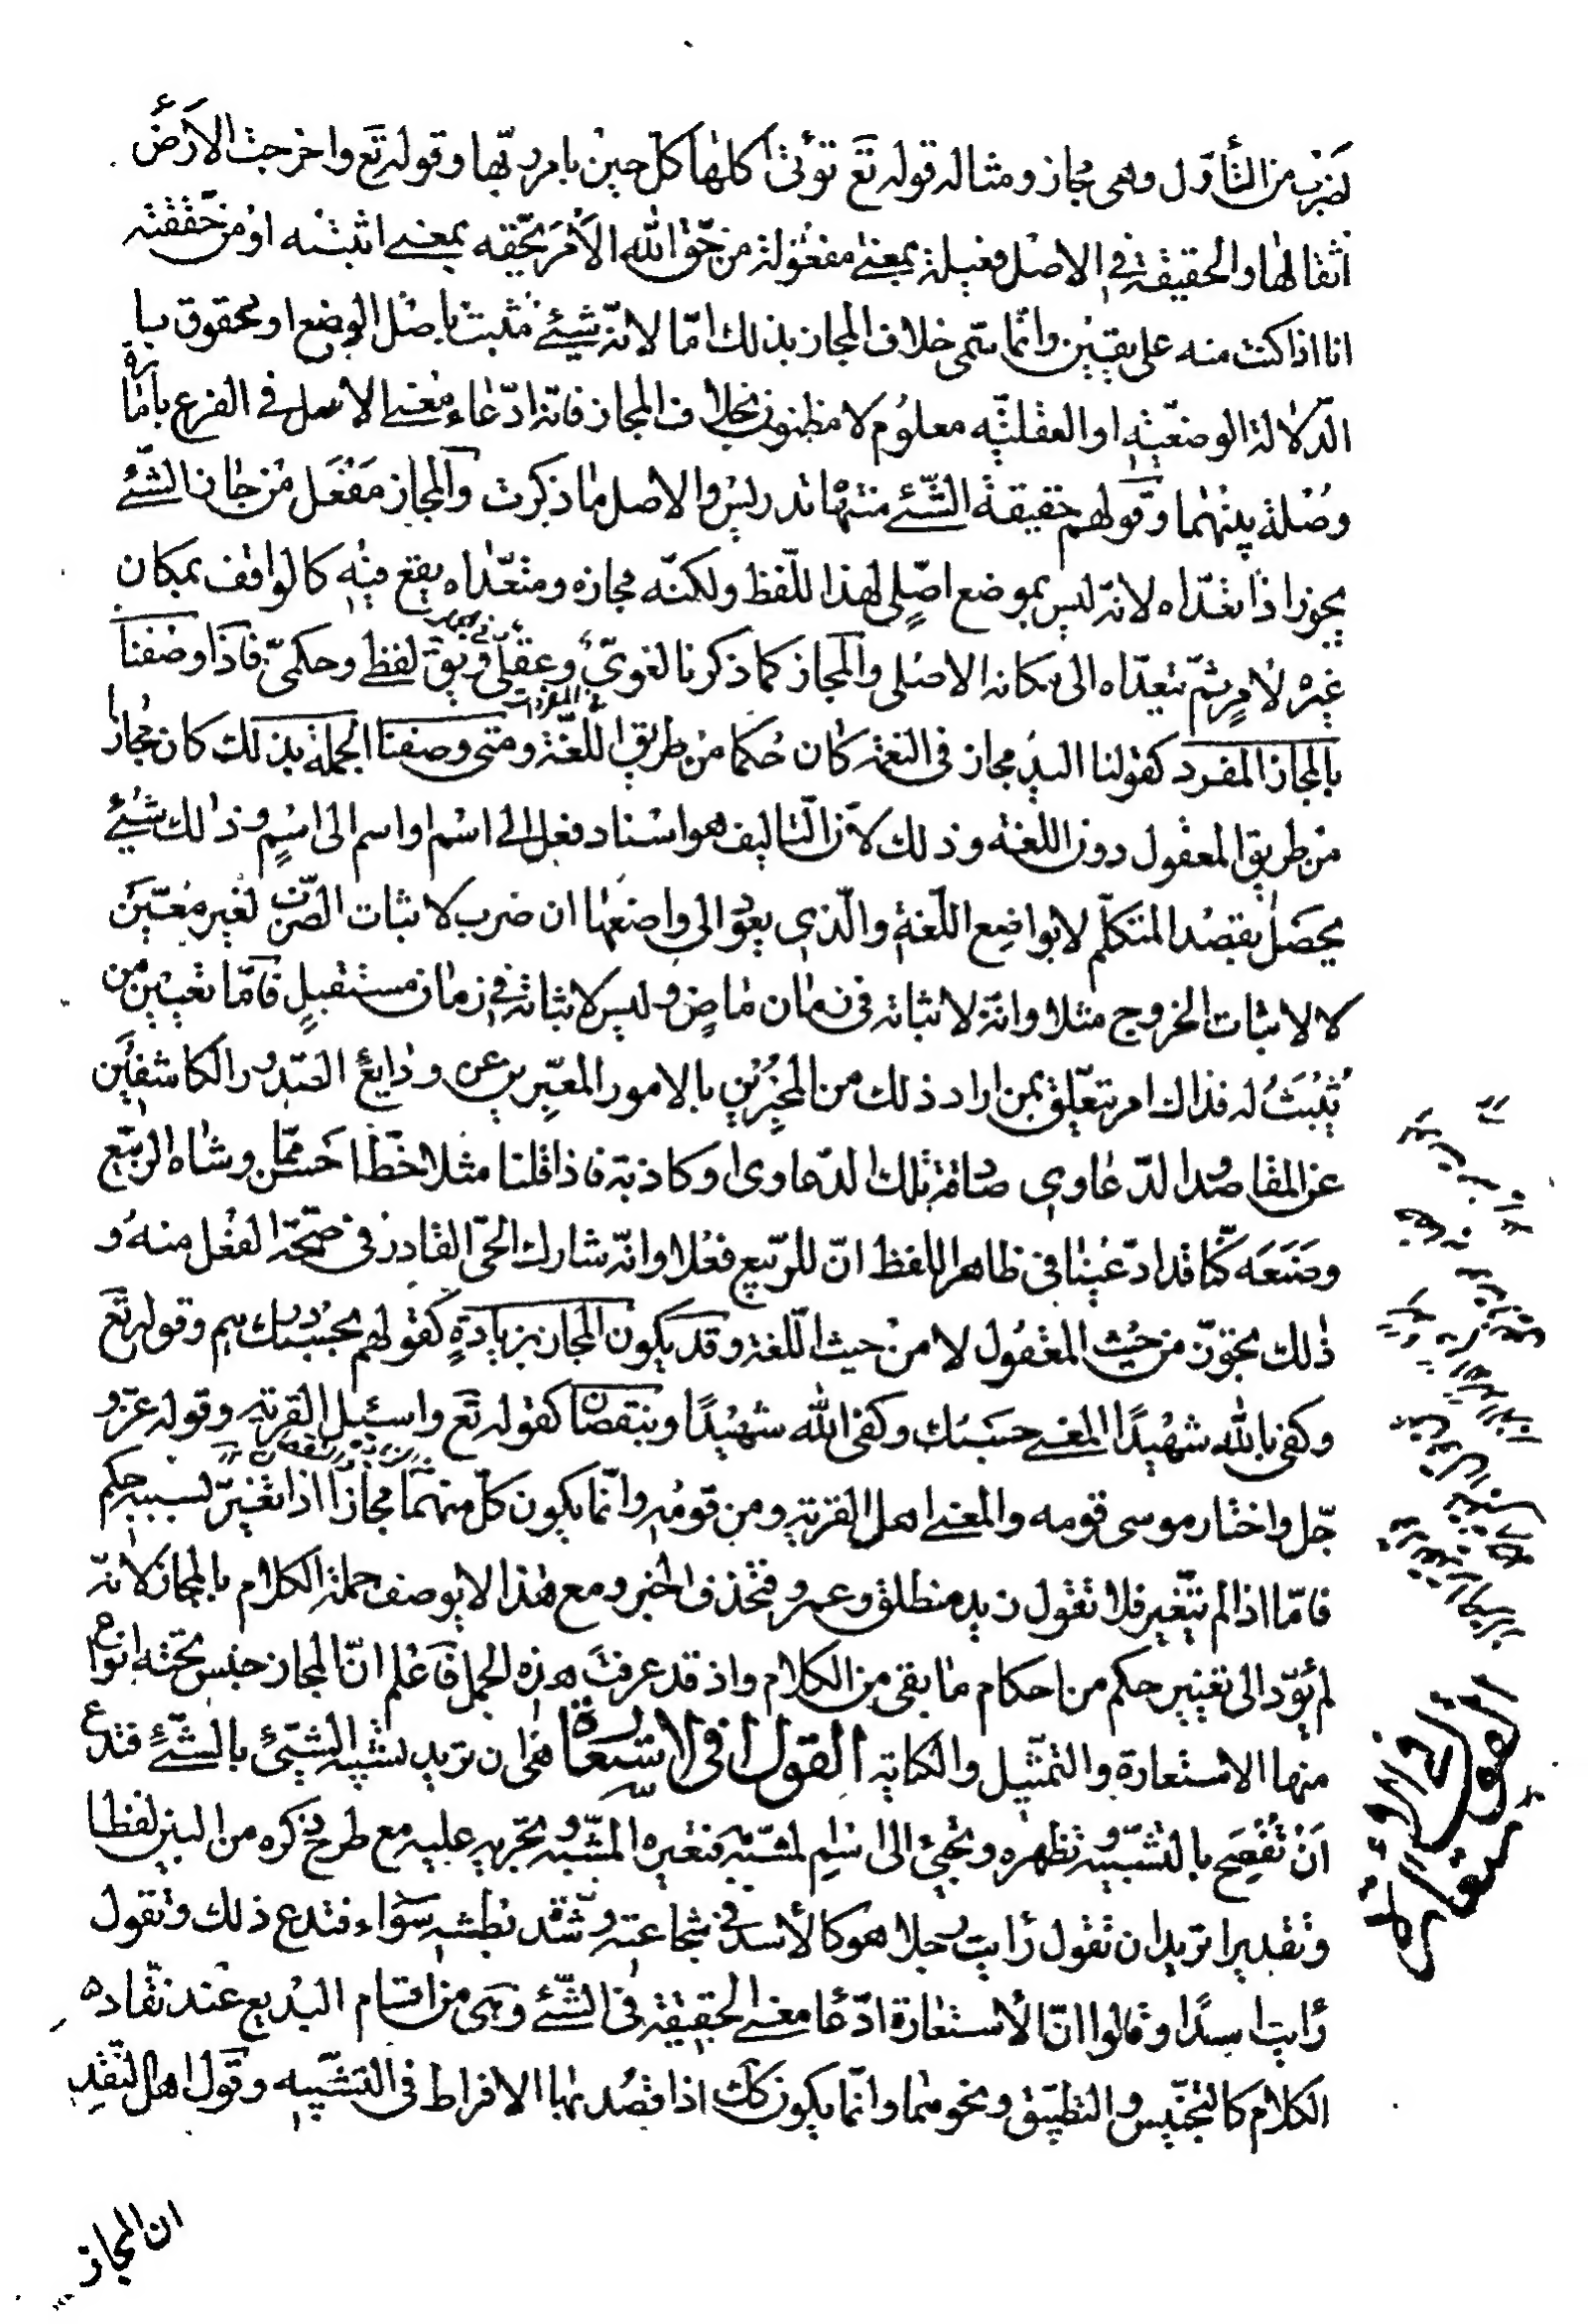 لضرب من التأوّل وهى مجاز ومثاله قوله تع تؤتى اكلها كلّ حين بامر ربّها وقوله تع واخرجت الارض
اثقالها والحقيقة فى الاصل فعيلة بمعنى مفعولة من حقّ الله الأمر يحقّه بمعنى اثبته او من حققته
انا اذا كنت منه على يقين وانّما سمّى خلاف المجاز بذلك امّا لانّه شيئ مثبت باصل الوضع او محقوق با
الدّلالة الوضعيّة او العقليّة معلوم لا مظنون بخلاف المجاز فانّه ادّعاء معنى الاصل فى الفرع بامارة
وصلة بينهما وقولهم حقيقة الشّئ منتهاه تدريس والاصل ما ذكرت والمجاز مفعل من جاز الشّئ
يجوز اذا تعدّاه لانّه ليس بموضع اصلى لهذا اللّفظ ولكنّه مجازه ومتعدّاه يقع فيه كالواقف بمكان
غيره لامر ثمّ تتعدّاه الى مكانه الاصلى والمجاز كما ذكرنا لغوىّ وعقلىّ لفظى وحكمىّ فاذا وصفنا
بالمجاز المفرد كقولنا اليد مجاز فى النعمة كان حكما من طريق اللّغة ومتى وصفنا الجملة بذلك كان مجازا
من طريق المعقول دون اللغة وذلك لأن التاليف هو اسناد فعل الى اسم او اسم الى اسم وذلك شيئ
يحصل بقصد المتكلّم لا بواضع اللّغة والّذى يعود الى واضعها ان ضرب لاثبات الضرب لغير معيّن
لا لاثبات الخروج مثلا وانّه لاثباته فى زمان ماض وليس لاثباته فى زمان مستقبل فامّا تعيين من
يثبت له فذاك امر يتعلّق بمن اراد ذلك من المخبرين بالامور المعبّرين عن ودايع الصّدور الكاشفين
عن المقاصد الدّعاوى صادقة تلك الدعاوى او كاذبة فاذا قلنا مثلا خطّ احسن ممّا وشاه الربيع
وصنعه كنّا قد ادّعينا فى ظاهر اللفظ انّ للربيع فعلا وانّه شارك الحىّ القادر فى صحّة الفعل منه و
ذلك تجوّز من حيث المعقول لا من حيث اللّغة وقد يكون المجاز بزيادة كقولهم بحسبك درهم وقوله تع
وكفى بالله شهيدا المعنى حسبك وكفى الله شهيدا وبنقصان كقوله تع واسئل القرية وقوله عزّ و
جلّ واختار موسى قومه والمعنى اهل القرية ومن قومه وانّما يكون كلّ منهما مجازا اذا تغيّر بسببه حكم
فامّا اذا لم يتغير فلا تقول زيد منطلق وعمرو فتحذف الخبر ومع هذا لا يوصف جملة الكلام بالمجاز لانّه
لم يؤدّ الى تغيير حكم من احكام ما بقى من الكلام واذ قد عرفت هذه الجمل فاعلم انّ المجاز جنس تحته انواع
منها الاستعارة والتمثيل والكناية القول فى الاستعارة هى ان تريد تشبيه الشّيئ بالشّئ فتدع
ان تفصح بالتشبيه وتظهره وتجيئ الى اسم المشبّه به فتعيره المشبّه وتجريه عليه مع طرح ذكره من البين لفظا
وتقديرا تريد ان تقول رأيت رجلا هو كالأسد فى شجاعته وشدّة بطشه سواء فتدع ذلك وتقول
رأيت اسدا وقالوا انّ الأستعارة ادّعا معنى الحقيقة فى الشّئ وهى من اقسام البديع عند نقّاده
الكلام كالتجنيس والتطبيق ونحوهما وانّما يكون كك اذا قصد بها الافراط فى التشبيه وقول اهل النقد
القول فى الاستعارة
ان المجاز